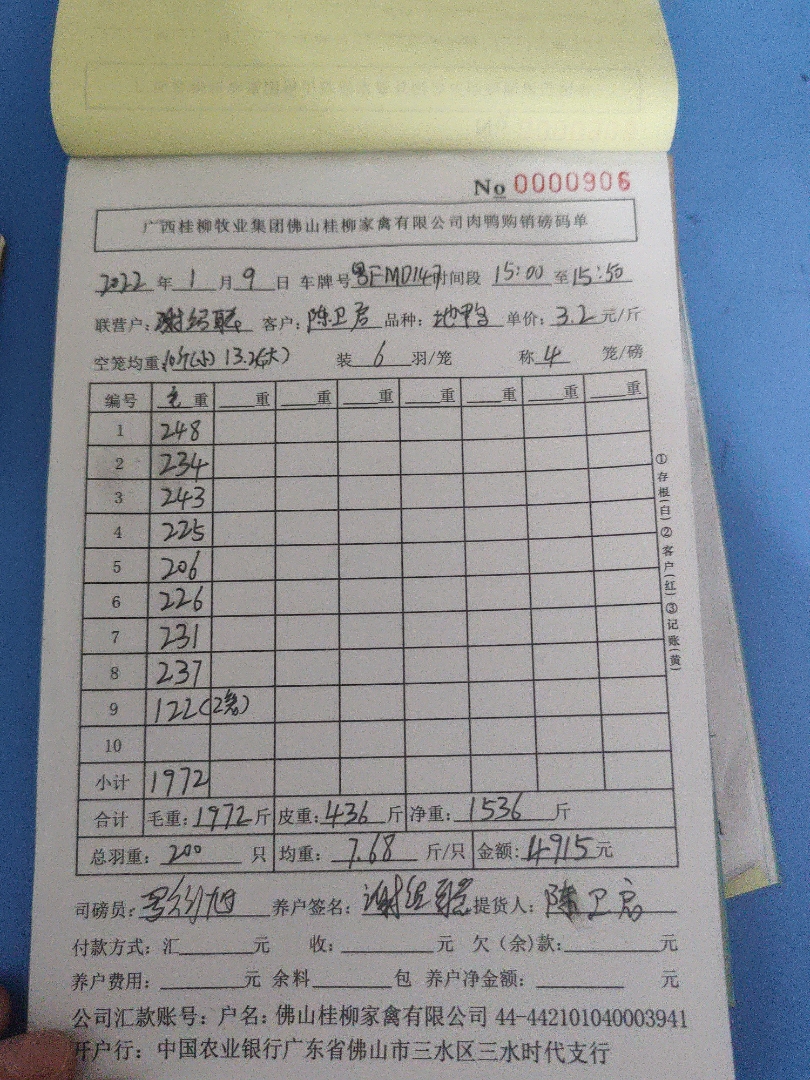 No 0000906
广西桂柳牧业集团佛山桂柳家禽有限公司肉鸭购销磅码单
2022年1月9日 车牌号粤FMD147时间段 15:00至15:50
联营户: 客户:陈卫启 品种:地鸭 单价:3.2元/斤
空笼均重: 13.2(大) 装6羽/笼 称4笼/磅
编号 毛重 重 重 重 重 重 重 重
1 248
2 234
3 243
4 225
5 206
6 226
7 231
8 237
9 122(2笼)
10
小计 1972
合计 毛重:1972斤 皮重:436斤 净重:1536斤
总羽重:200只 均重:7.68斤/只 金额:4915元
司磅员: 养户签名: 提货人:陈卫启
付款方式:汇 元 收: 元 欠(余)款: 元
养户费用: 元 余料 包 养户净金额: 元
公司汇款账号:户名:佛山桂柳家禽有限公司 44-442101040003941
开户行:中国农业银行广东省佛山市三水区三水时代支行
①存根(白)②客户(红)③记账(黄)